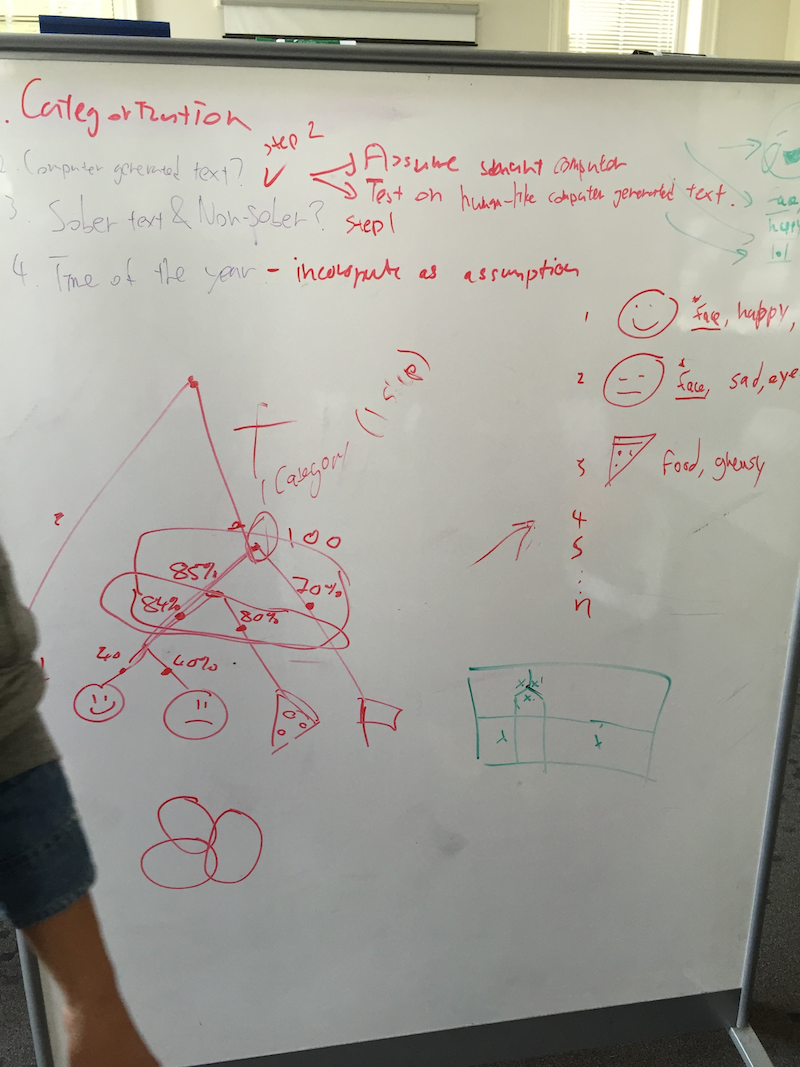 . Categorization
step 2
2. Computer generated text? Assume computer
Test on human-like computer generated text.
3. Sober text & Non-sober? step 1
4. Time of the year - incorporate as assumption
happy
lol
1 face, happy,
2 face, sad, eye
3 Food, cheesy
4
5
n
1 Category (1 step)
100
85%
84%
80%
70%
20
40%